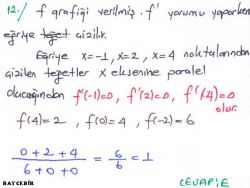 12./ f grafiği verilmiş. f' yorumu yaparken
eğriye teğet çizilir.
Eğriye x=-1, x=2, x=4 noktalarından
çizilen teğetler x eksenine paralel
olacağından f'(-1)=0, f'(2)=0, f'(4)=0
olur.
f(4)=2 , f(0)=4 , f(-2)=6
0+2+4 / 6+0+0 = 6/6 = 1
CEVAP:E
BAYÇEBİR